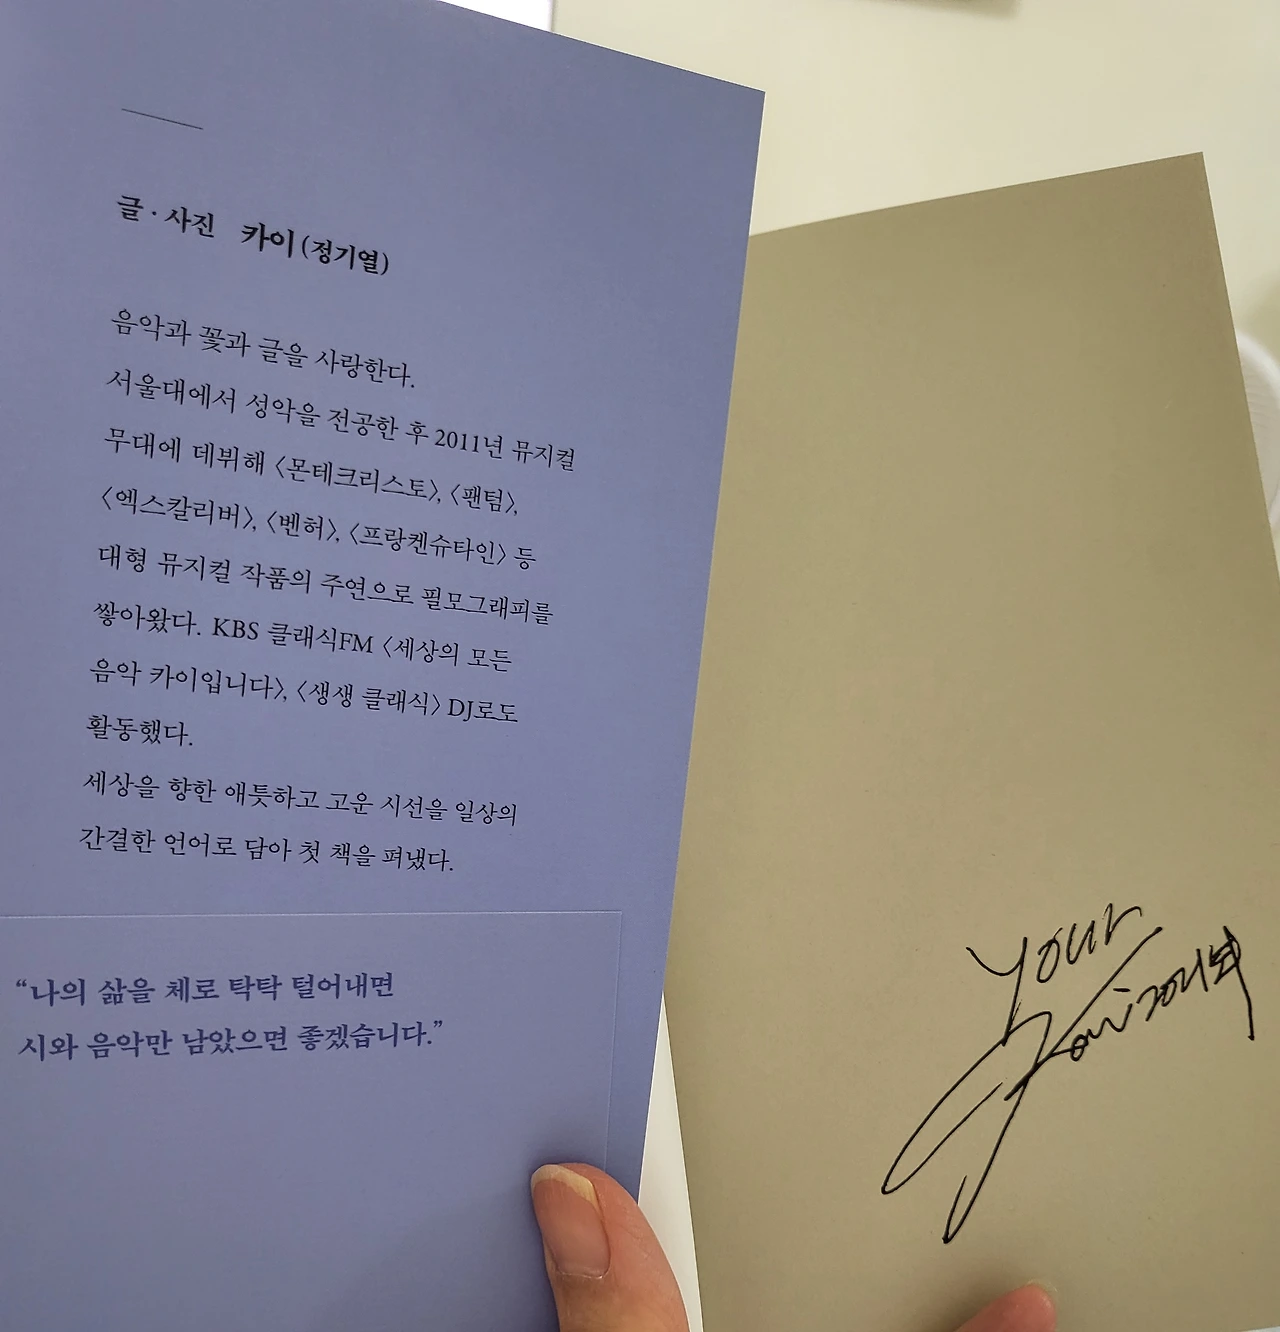 글 · 사진 카이 (정기열)
음악과 꽃과 글을 사랑한다.
서울대에서 성악을 전공한 후 2011년 뮤지컬
무대에 데뷔해 〈몬테크리스토〉, 〈팬텀〉,
〈엑스칼리버〉, 〈벤허〉, 〈프랑켄슈타인〉 등
대형 뮤지컬 작품의 주연으로 필모그래피를
쌓아왔다. KBS 클래식FM 〈세상의 모든
음악 카이입니다〉, 〈생생 클래식〉 DJ로도
활동했다.
세상을 향한 애틋하고 고운 시선을 일상의
간결한 언어로 담아 첫 책을 펴냈다.
“나의 삶을 체로 탁탁 털어내면
시와 음악만 남았으면 좋겠습니다.”
your